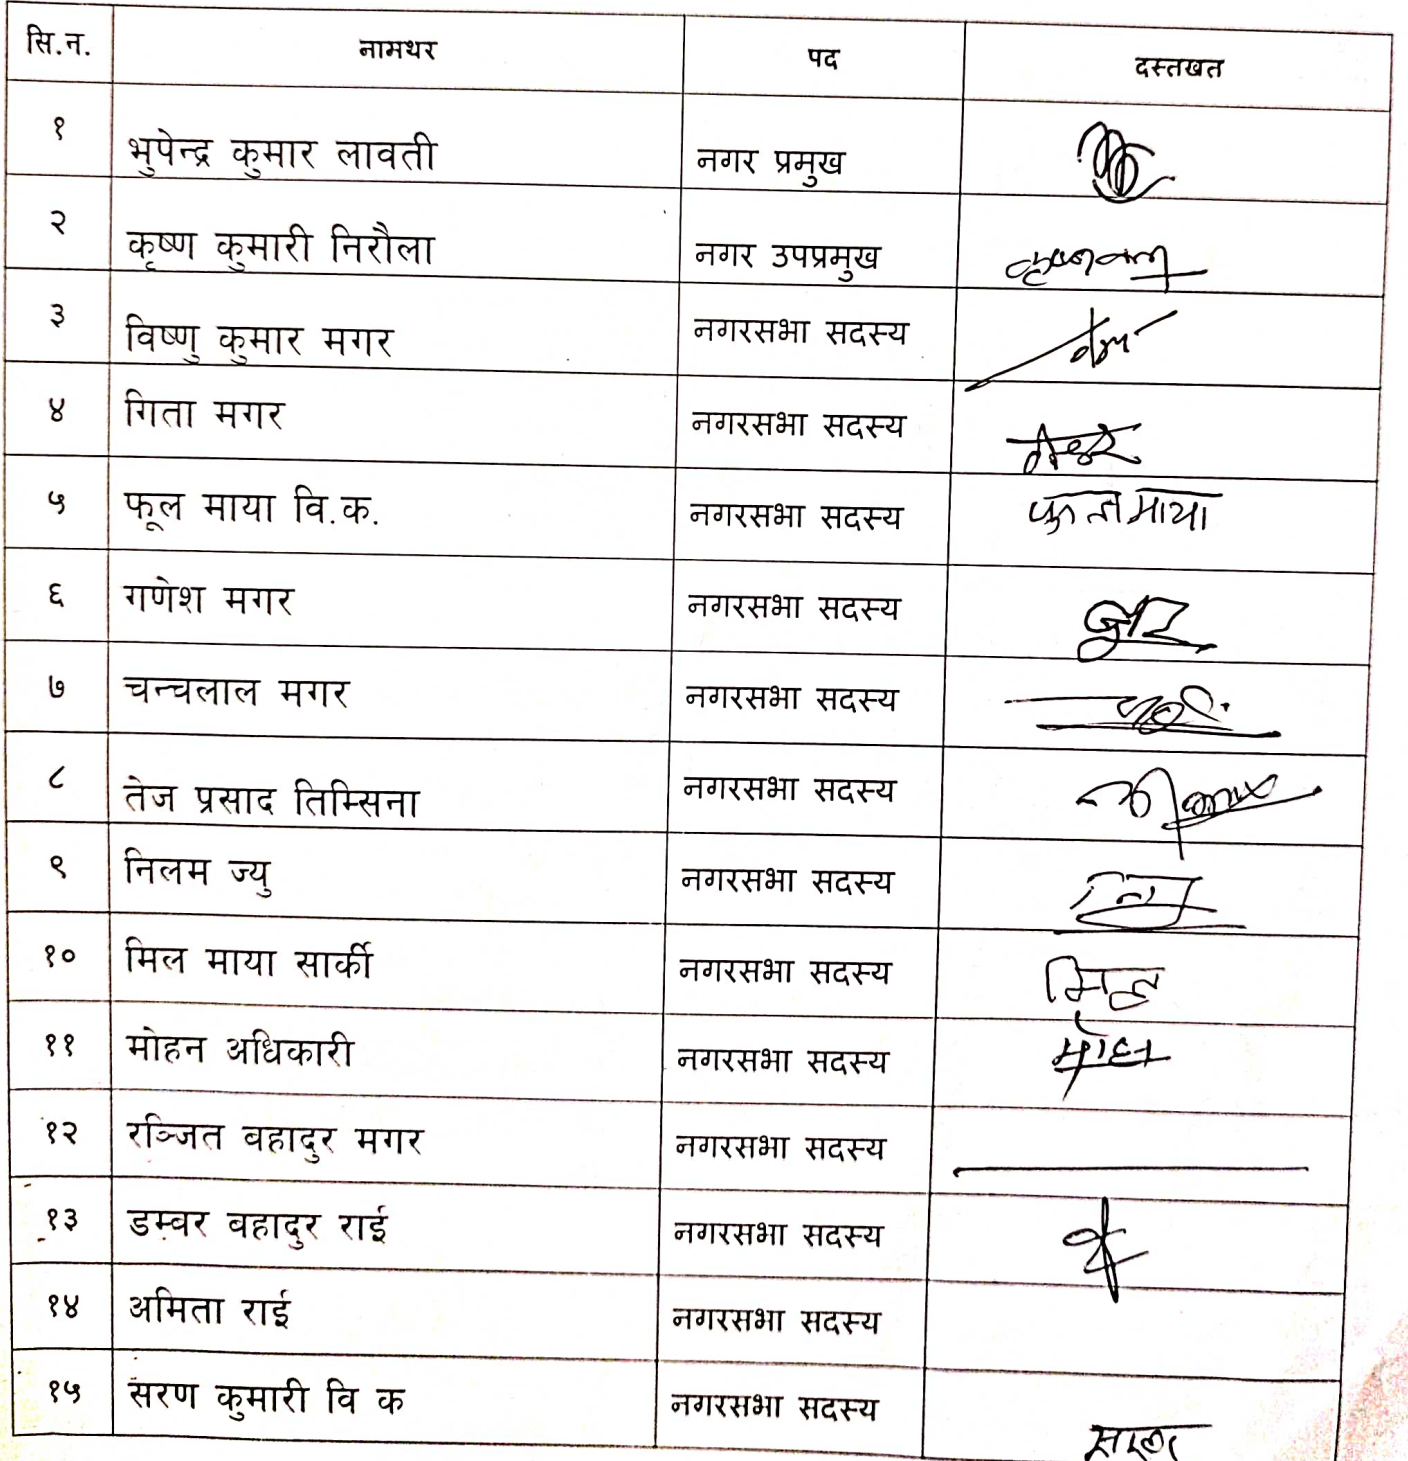 सि.न. नामथर पद दस्तखत
१ भुपेन्द्र कुमार लावती नगर प्रमुख
२ कृष्ण कुमारी निरौला नगर उपप्रमुख
३ विष्णु कुमार मगर नगरसभा सदस्य
४ गिता मगर नगरसभा सदस्य
५ फूल माया वि.क. नगरसभा सदस्य फुलमाया
६ गणेश मगर नगरसभा सदस्य
७ चन्चलाल मगर नगरसभा सदस्य
८ तेज प्रसाद तिम्सिना नगरसभा सदस्य
९ निलम ज्यु नगरसभा सदस्य
१० मिल माया सार्की नगरसभा सदस्य
११ मोहन अधिकारी नगरसभा सदस्य
१२ रञ्जित वहादुर मगर नगरसभा सदस्य
१३ डम्वर वहादुर राई नगरसभा सदस्य
१४ अमिता राई नगरसभा सदस्य
१५ सरण कुमारी वि क नगरसभा सदस्य